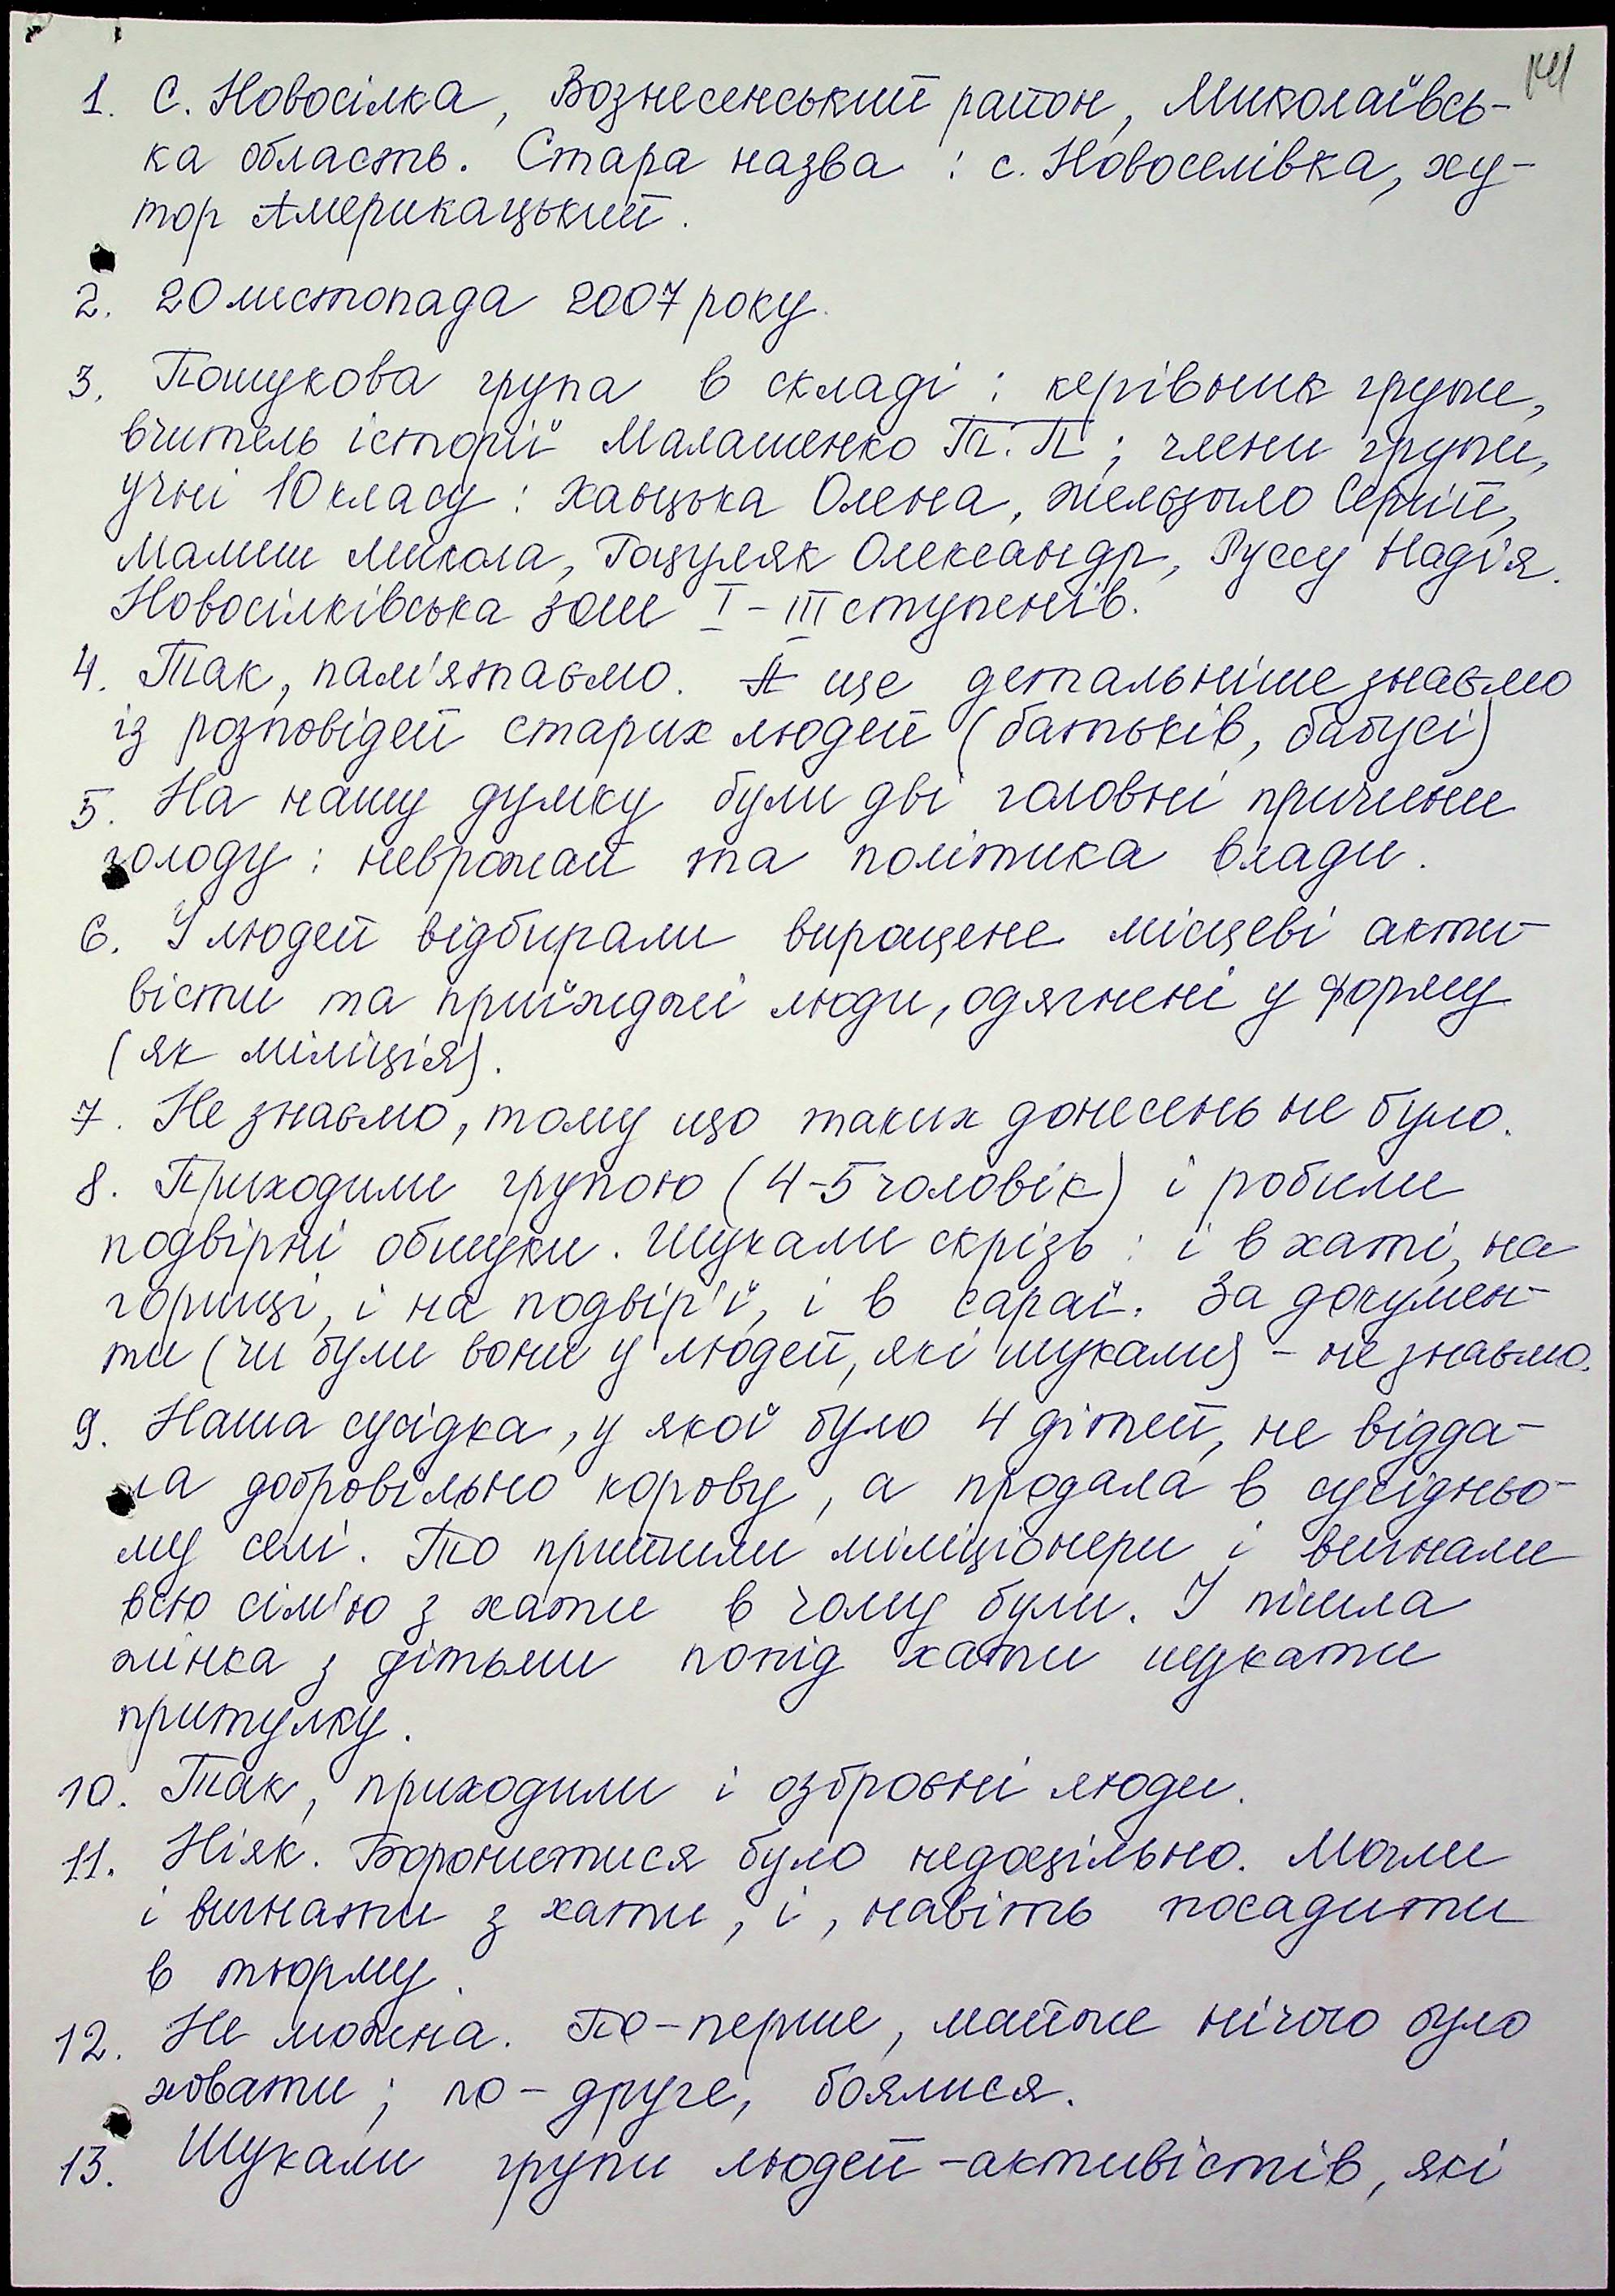 1. С. Новосілка, Вознесенський район, Миколаївсь-
ка область. Стара назва : с. Новоселівка, ху-
тор Американський.
2. 20 листопада 2007 року.
3. Пошукова група в складі : керівник групи,
вчитель історії Малашенко П. П ; члени групи,
учні 10 класу : Хаыцька Олена, Сергій,
Малиш Микола, Гоцуляк Олександр, Руссу Надія.
Новосілківська зош I - III ступенів.
4. Так, пам'ятаємо. А ще детальніше знаємо
із розповідей старих людей (батьків, бабусі)
5. На нашу думку були дві головні причини
голоду : неврожай та політика влади.
6. У людей відбирали вирощене місцеві акти-
вісти та приїжджі люди, одягнені у форму
(як міліція).
7. Не знаємо, тому що таких донесень не було.
8. Приходили групою (4-5 чоловік) і робили
подвірні обшуки. Шукали скрізь : і в хаті, на
горищі, і на подвір'ї, і в сараї. За докумен-
ти (чи були вони у людей, які шукали) - не знаємо.
9. Наша сусідка, у якої було 4 дітей, не відда-
ла добровільно корову, а продала в сусідньо-
му селі. То прийшли міліціонери і вигнали
всю сім'ю з хати в чому були. І пішла
жінка з дітьми попід хати шукати
притулку.
10. Так, приходили і озброєні люди.
11. Ніяк. Боронитися було недоцільно. Могли
і вигнати з хати, і, навіть посадити
в тюрму.
12. Не можна. По-перше, майже нічого було
ховати ; по-друге, боялися.
13. Шукали групи людей-активістів, які